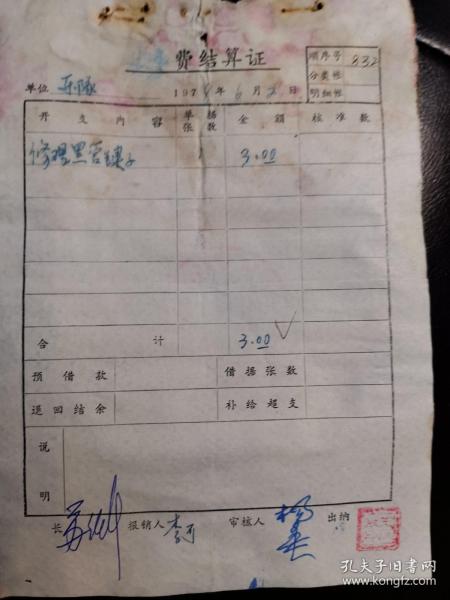 费结算证
顺序号 832
分类帐
明细帐
单位 乐队 197 年6月2日
开支内容 单据张数 金额 核准数
修理黑管键子 1 3.00
合计 3.00
预借款 借据张数
退回结余 补给超支
说明
长 报销人 审核人 出纳
孔夫子旧书网
www.kongfz.com